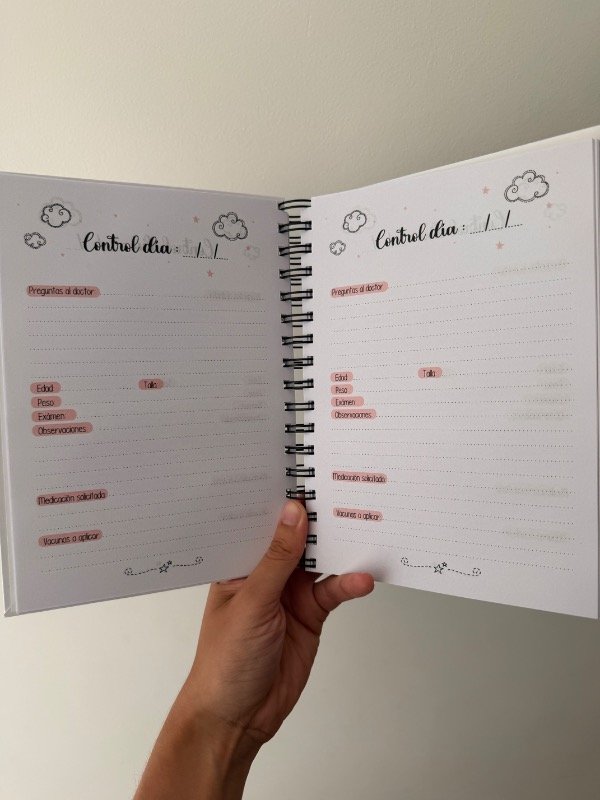 Control día : __/__/__
Preguntas al doctor
Edad Talla
Peso
Exámen
Observaciones
Medicación solicitada
Vacunas a aplicar
Control día : __/__/__
Preguntas al doctor
Edad Talla
Peso
Exámen
Observaciones
Medicación solicitada
Vacunas a aplicar